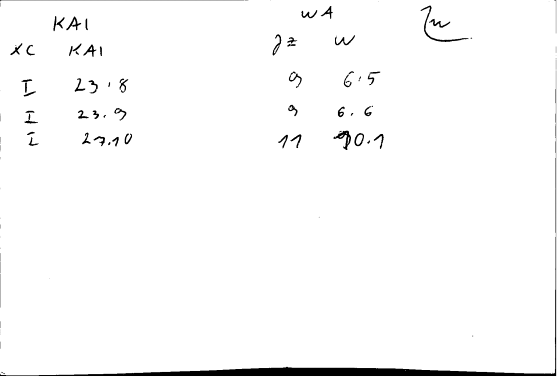 KAI WA
XC KAI Jz W
I 23.8 9 6.5
I 23.9 9 6.6
I 27.10 11 10.1